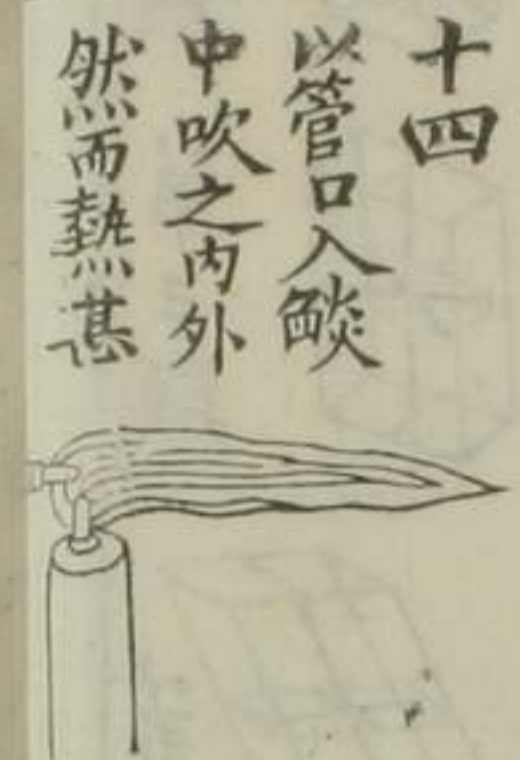 十四
以管口入燄
中吹之内外
然而熱甚